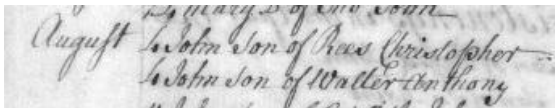 Mary D of Tho John
August 4 John Son of Rees Christopher
4 John Son of Walter Anthony